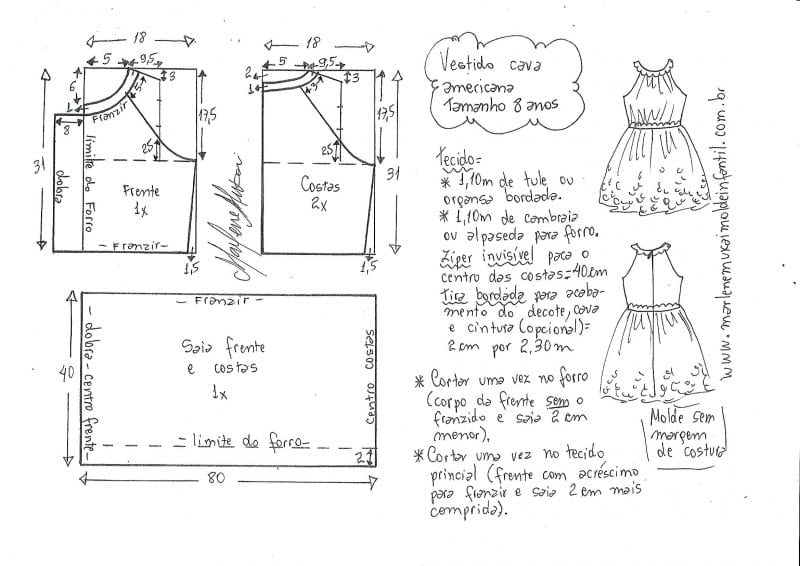 Vestido cava
americana
Tamanho 8 anos
18
5
9,5
6
3
1
5
Franzir
8
17,5
25
31
dobra
limite do Forro
Frente
1x
- Franzir -
1,5
18
5
9,5
2
1
3
5
17,5
25
31
Costas
2x
1,5
Marlene Mukai
- Franzir -
40
- dobra - centro frente -
Saia frente
e costas
1x
centro costas
= limite do forro -
2
80
Tecido=
* 1,10m de tule ou
organsa bordada.
* 1,10m de cambraia
ou alpaseda para forro.
Zíper invisível para o
centro das costas=40cm
Tira bordada para acaba-
mento do decote, cava
e cintura (opcional)=
2cm por 2,30m
* Cortar uma vez no forro
(corpo da frente sem o
franzido e saia 2cm
menor).
* Cortar uma vez no tecido
princial (frente com acréscimo
para franzir e saia 2cm mais
comprida).
Molde sem
margem
de costura
www.marlenemukaimoldeinfantil.com.br